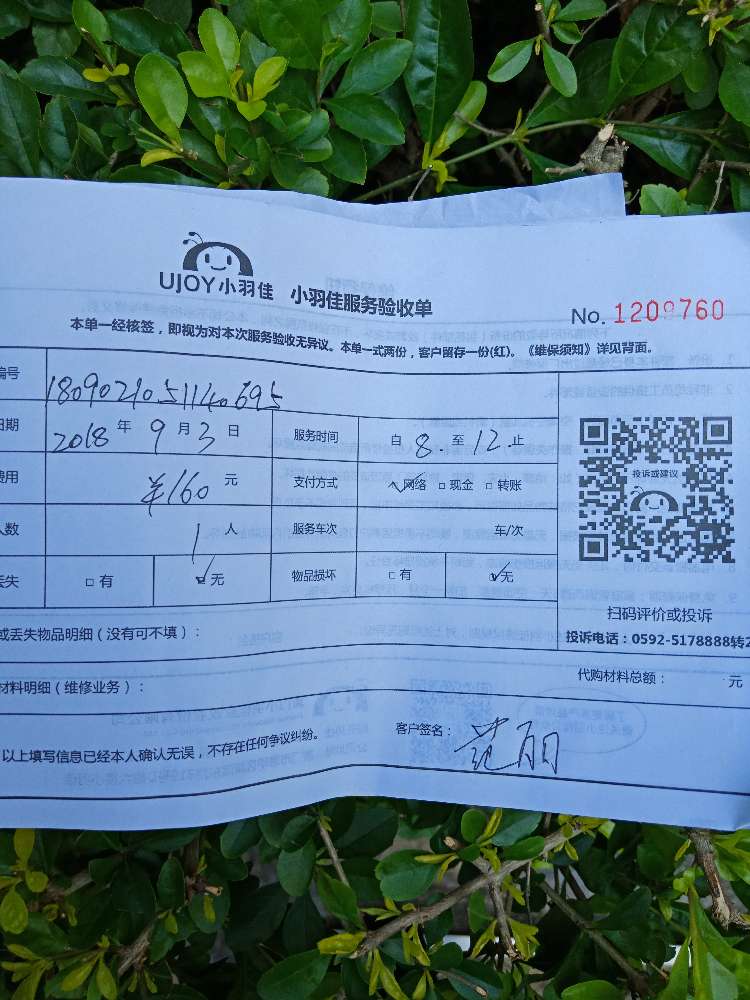 UJOY小羽佳 小羽佳服务验收单
No. 1209760
本单一经核签，即视为对本次服务验收无异议。本单一式两份，客户留存一份(红)。《维保须知》详见背面。
编号 1809021051140695
日期 2018 年 9 月 3 日 服务时间 自 8. 至 12 止
费用 ¥160 元 支付方式 ☑网络 □现金 □转账
人数 1 人 服务车次 车/次
丢失 □有 ☑无 物品损坏 □有 ☑无
投诉或建议
扫码评价或投诉
投诉电话：0592-5178888转2
或丢失物品明细（没有可不填）：
材料明细（维修业务）： 代购材料总额： 元
以上填写信息已经本人确认无误，不存在任何争议纠纷。 客户签名： 范丽